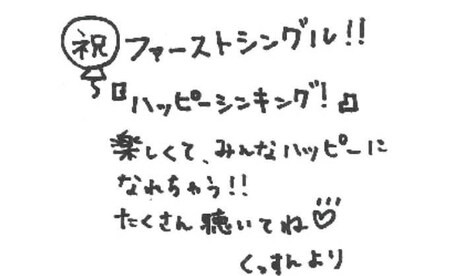 祝 ファーストシングル!!
『ハッピーシンキング!』
楽しくて、みんなハッピーに
なれちゃう!!
たくさん聴いてね♡
くっすんより